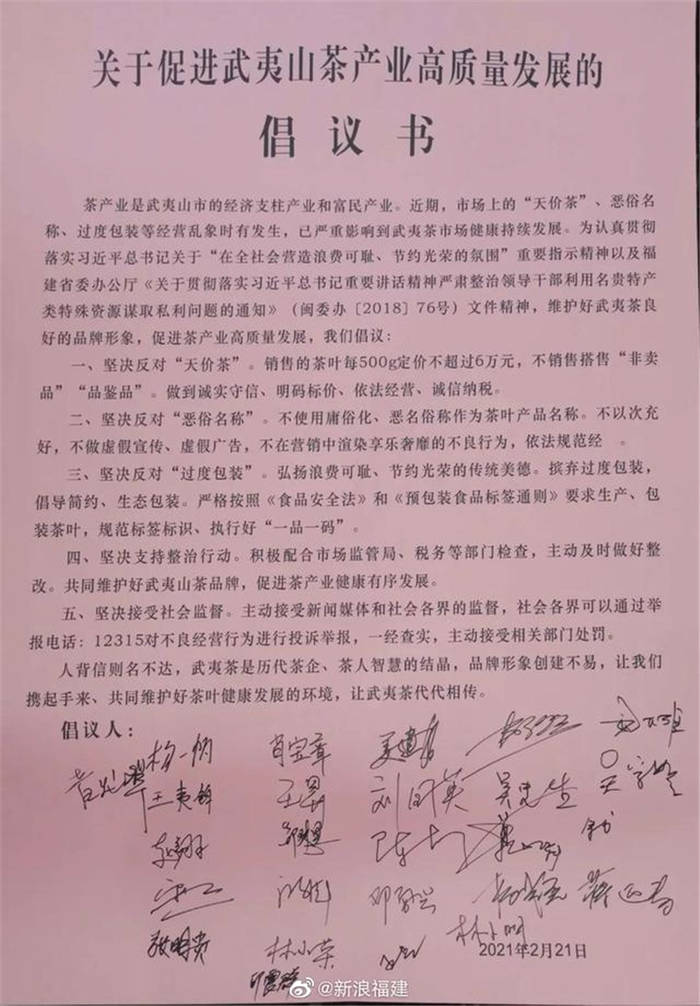 关于促进武夷山茶产业高质量发展的
倡议书
茶产业是武夷山市的经济支柱产业和富民产业。近期，市场上的“天价茶”、恶俗名
称、过度包装等经营乱象时有发生，已严重影响到武夷茶市场健康持续发展。为认真贯彻
落实习近平总书记关于“在全社会营造浪费可耻、节约光荣的氛围”重要指示精神以及福
建省委办公厅《关于贯彻落实习近平总书记重要讲话精神严肃整治领导干部利用名贵特产
类特殊资源谋取私利问题的通知》（闽委办〔2018〕76号）文件精神，维护好武夷茶良
好的品牌形象，促进茶产业高质量发展，我们倡议：
一、坚决反对“天价茶”。销售的茶叶每500g定价不超过6万元，不销售搭售“非卖
品”“品鉴品”。做到诚实守信、明码标价、依法经营、诚信纳税。
二、坚决反对“恶俗名称”。不使用庸俗化、恶名俗称作为茶叶产品名称。不以次充
好，不做虚假宣传、虚假广告，不在营销中渲染享乐奢靡的不良行为，依法规范经 。
三、坚决反对“过度包装”。弘扬浪费可耻、节约光荣的传统美德。摈弃过度包装，
倡导简约、生态包装。严格按照《食品安全法》和《预包装食品标签通则》要求生产、包
装茶叶，规范标签标识、执行好“一品一码”。
四、坚决支持整治行动。积极配合市场监管局、税务等部门检查，主动及时做好整
改。共同维护好武夷山茶品牌，促进茶产业健康有序发展。
五、坚决接受社会监督。主动接受新闻媒体和社会各界的监督，社会各界可以通过举
报电话：12315对不良经营行为进行投诉举报，一经查实，主动接受相关部门处罚。
人背信则名不达，武夷茶是历代茶企、茶人智慧的结晶，品牌形象创建不易，让我们
携起手来、共同维护好茶叶健康发展的环境，让武夷茶代代相传。
倡议人：
肖宝章
刘国英
林小荣
2021年2月21日
@新浪福建